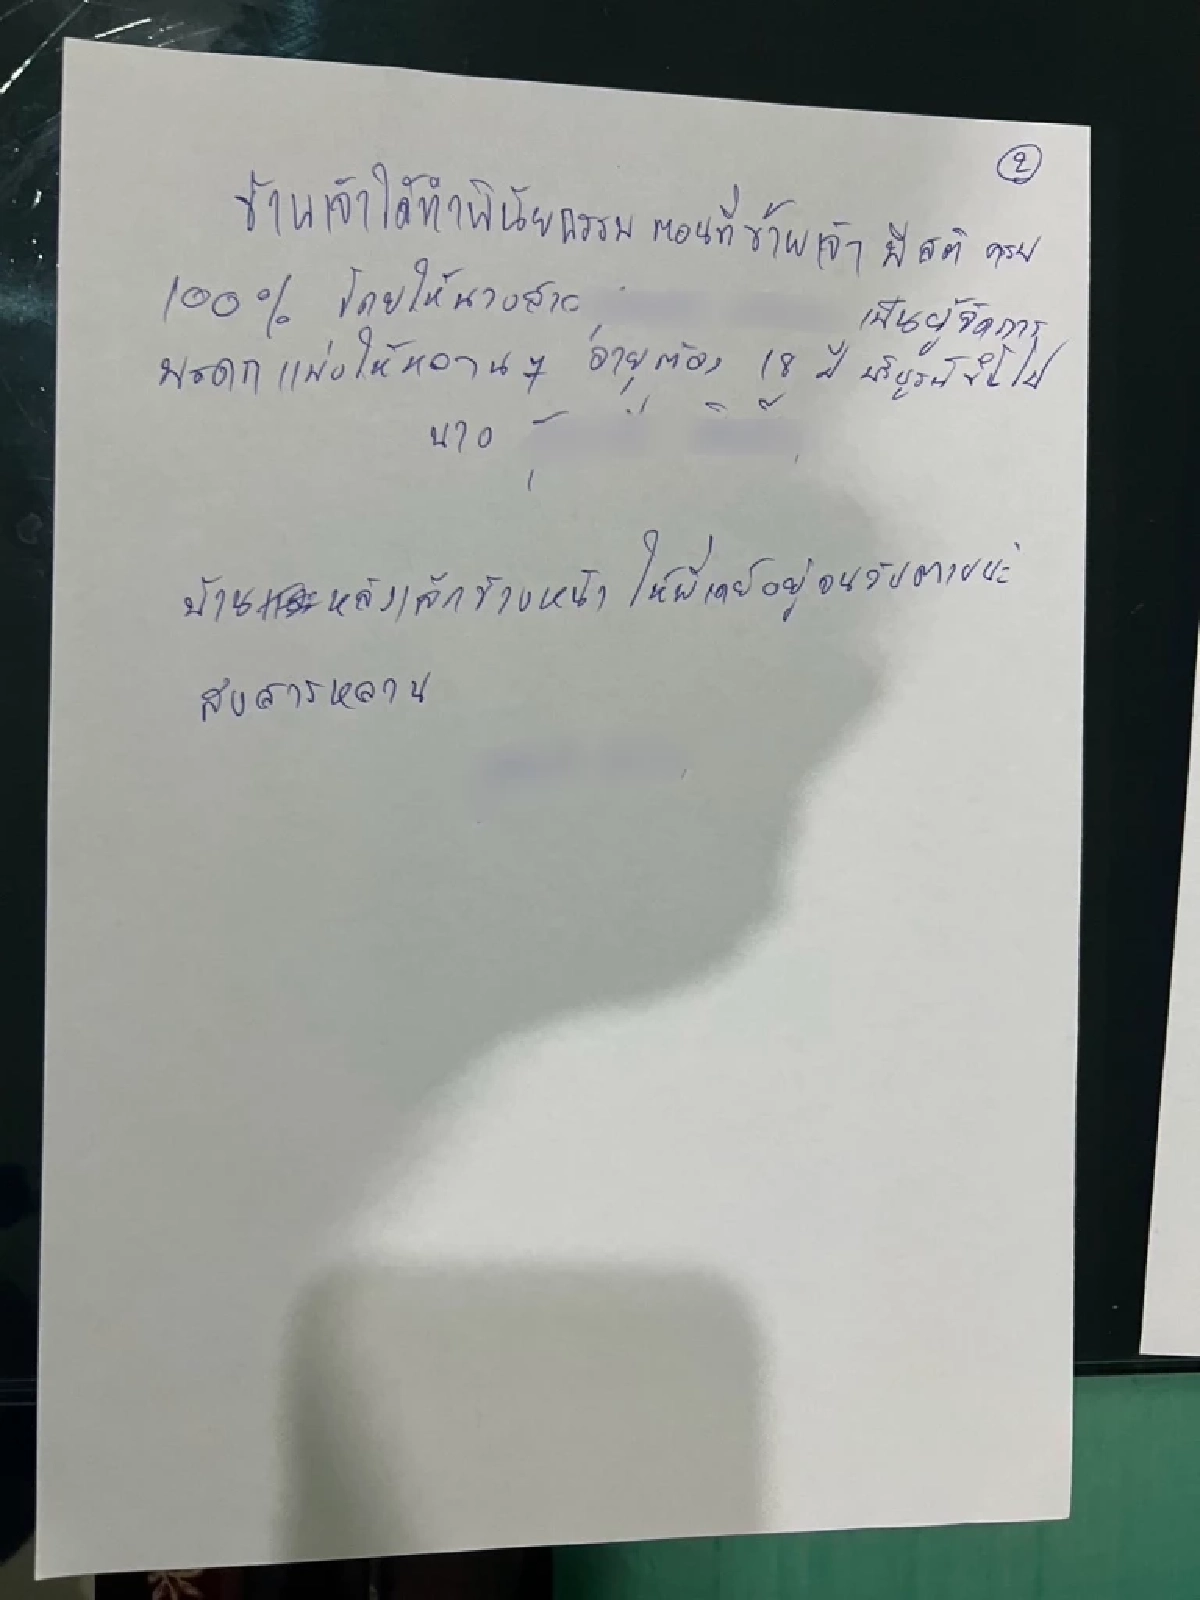 ๒
ข้าพเจ้าได้ทำพินัยกรรม ตอนที่ข้าพเจ้า มีสติ ครบ
100% โดยให้นางสาว เป็นผู้จัดการ
มรดก แบ่งให้หลาน ๆ อายุต้อง 18 ปี บริบูรณ์ขึ้นไป
นาง
บ้าน หลังเล็กข้างหน้า ให้พี่เดย์อยู่จนวันตายนะ
สงสารหลาน